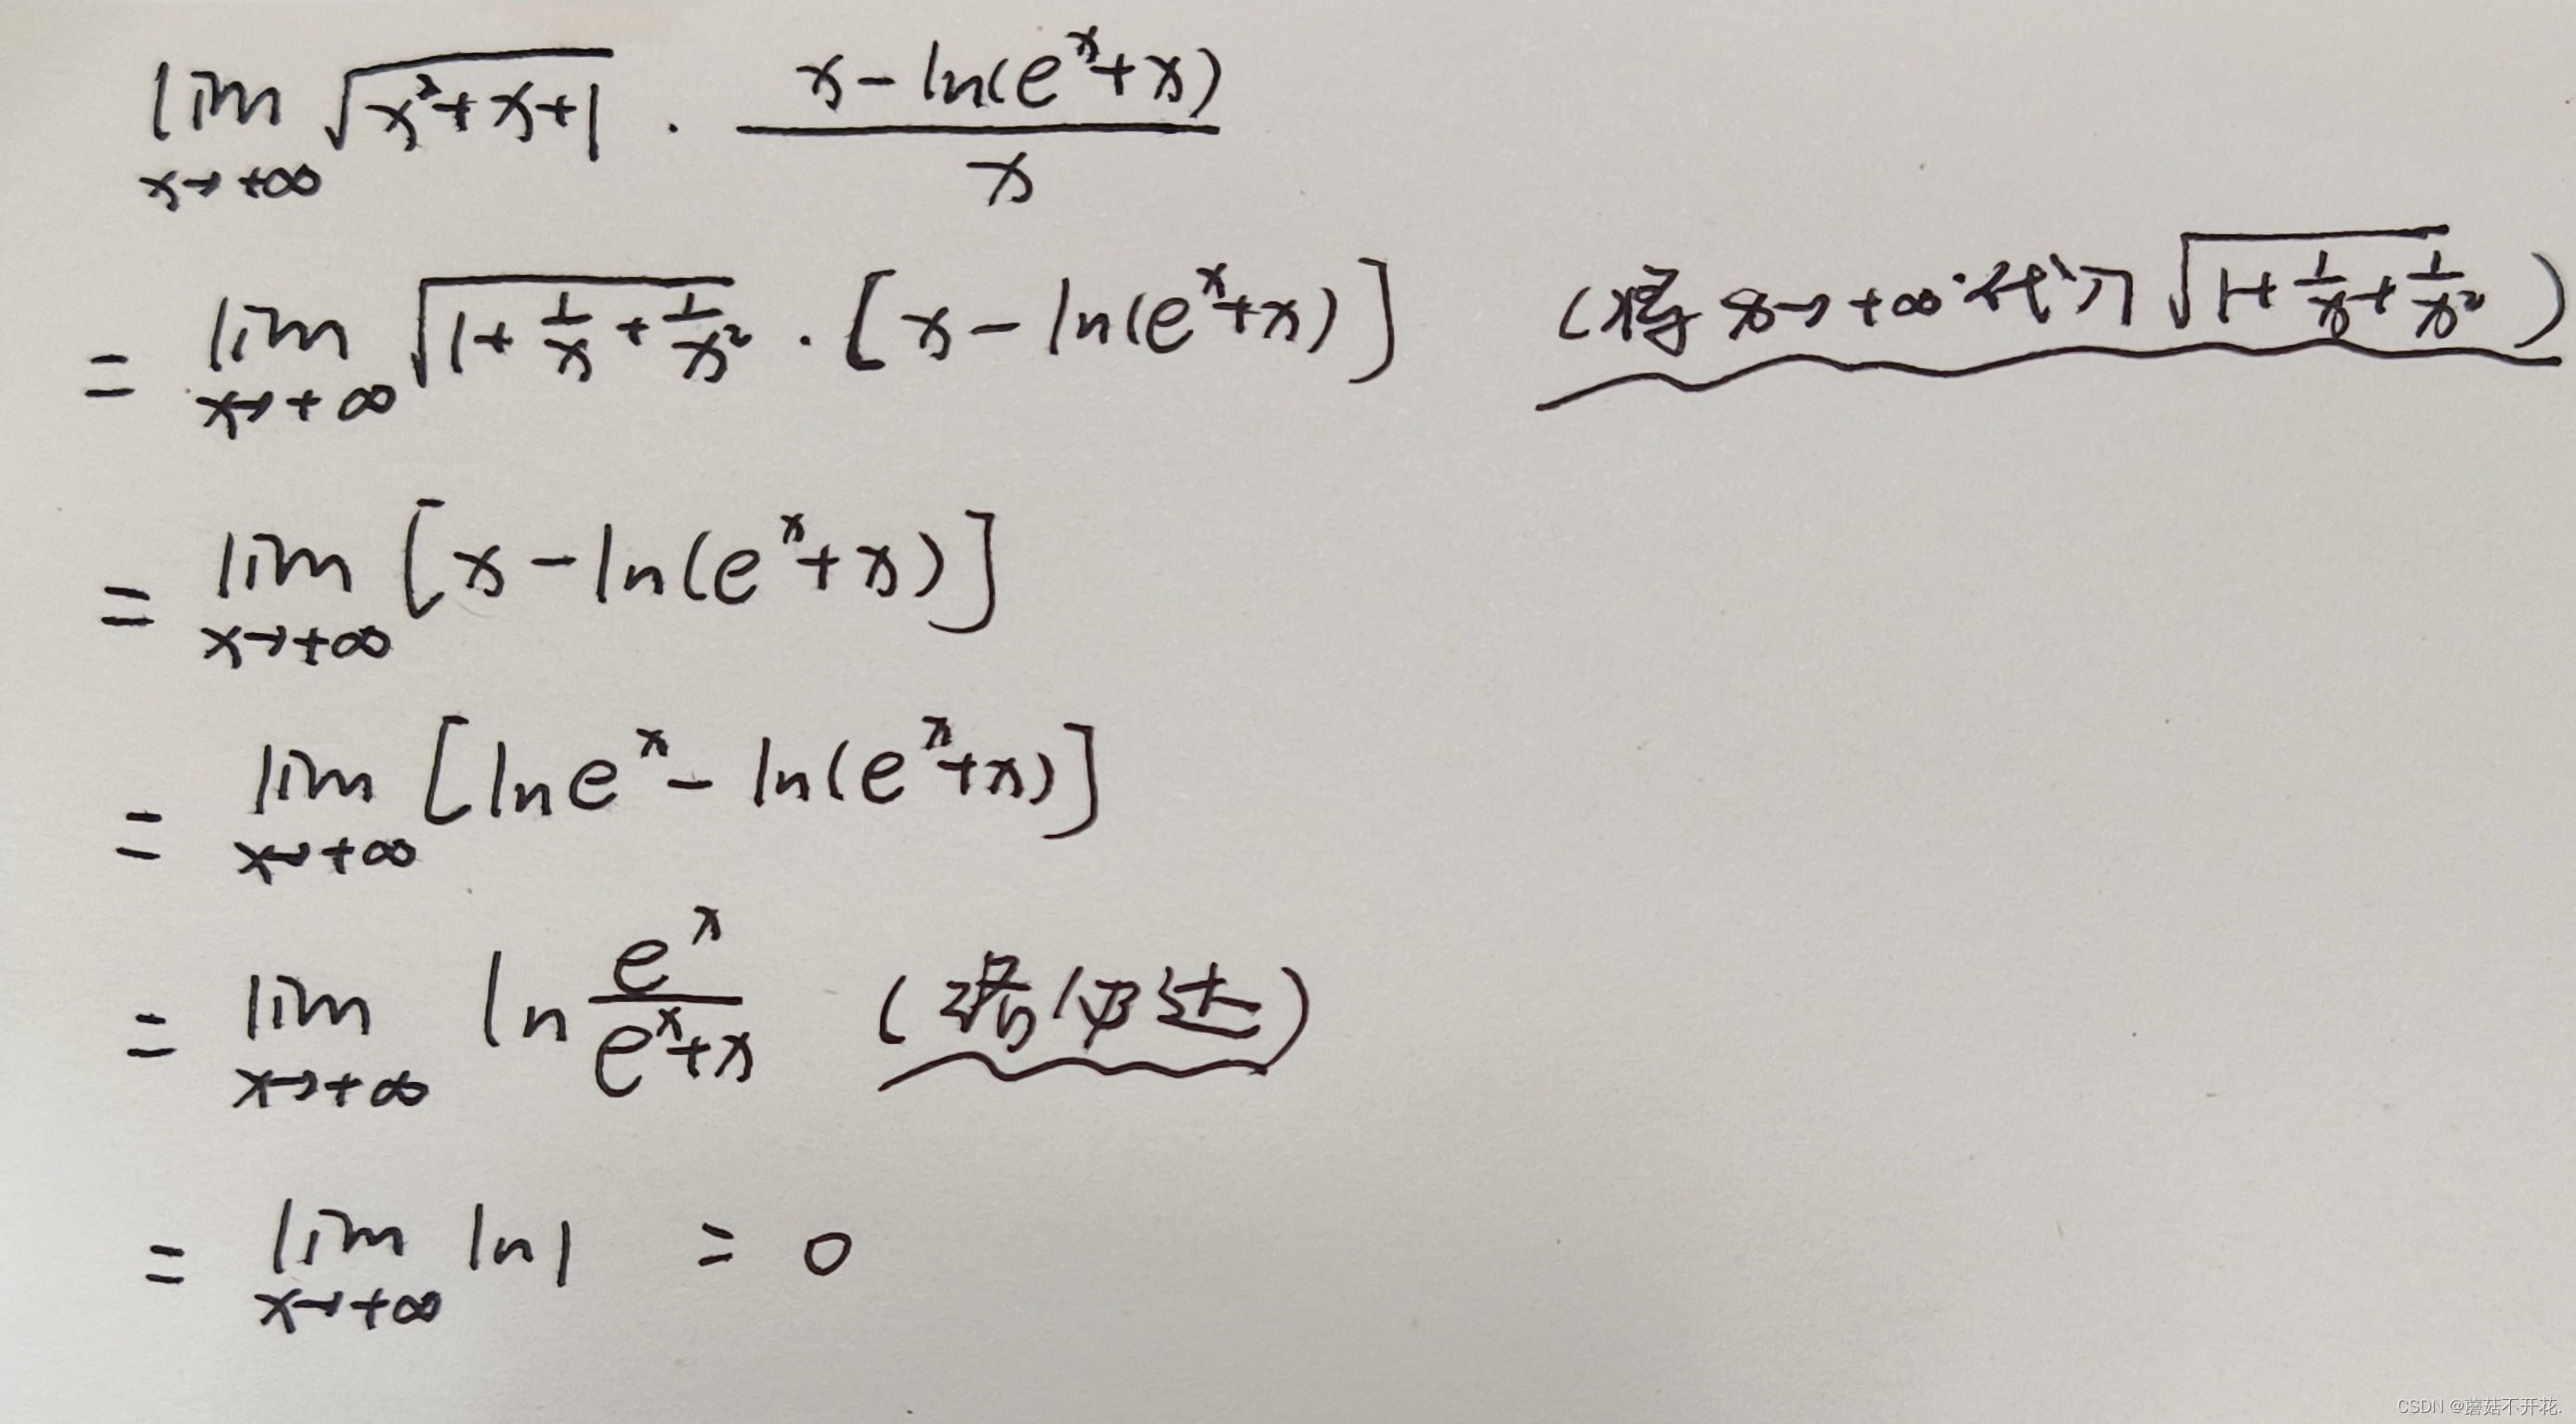 lim x→+∞ √(x²+x+1) · (x-ln(eˣ+x))/x
= lim x→+∞ √(1+1/x+1/x²) · [x-ln(eˣ+x)] (将x→+∞代入√(1+1/x+1/x²))
= lim x→+∞ [x-ln(eˣ+x)]
= lim x→+∞ [lneˣ-ln(eˣ+x)]
= lim x→+∞ ln eˣ/(eˣ+x) (洛必达)
= lim x→+∞ ln1 = 0
CSDN @蘑菇不开花.